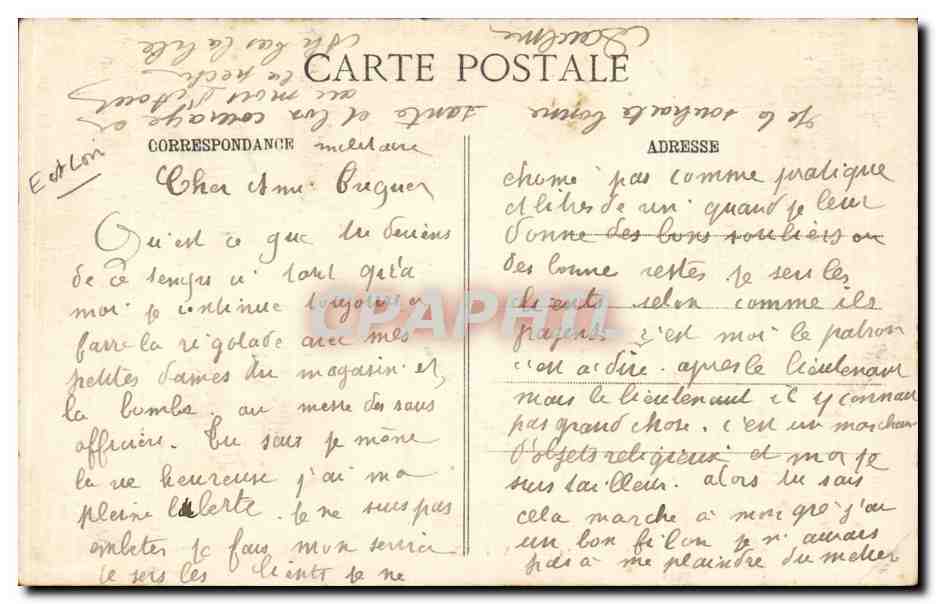 CARTE POSTALE
CORRESPONDANCE militaire
ADRESSE
Cher Ami
Qu'est ce que tu deviens
de ce temps ci tant qu'a
moi je continue toujours a
farre la rigolade avec mes
petites dames du magasin et
la bombe au messe des sous
officiers. Tu sais je mène
la vie heureuse j'ai ma
pleine liberte. Je ne suis pas
embeter je fais mon service
je sers les clients je ne
chome pas comme pratique
quand je leur
donne des bons souliers ou
des bonne restes je sers les
clients selon comme ils
payent c'est moi le patron
c'est a dire apres le lieutenant
mais le lieutenant il y connait
pas grand chose. c'est un marchand
d'objets religieux et moi je
suis tailleur. alors tu sais
cela marche à mon gré j'ai
un bon filon je n'aurais
pas à me plaindre du metier
Je te souhaite bonne
sante et bon courage
CPAPHIL